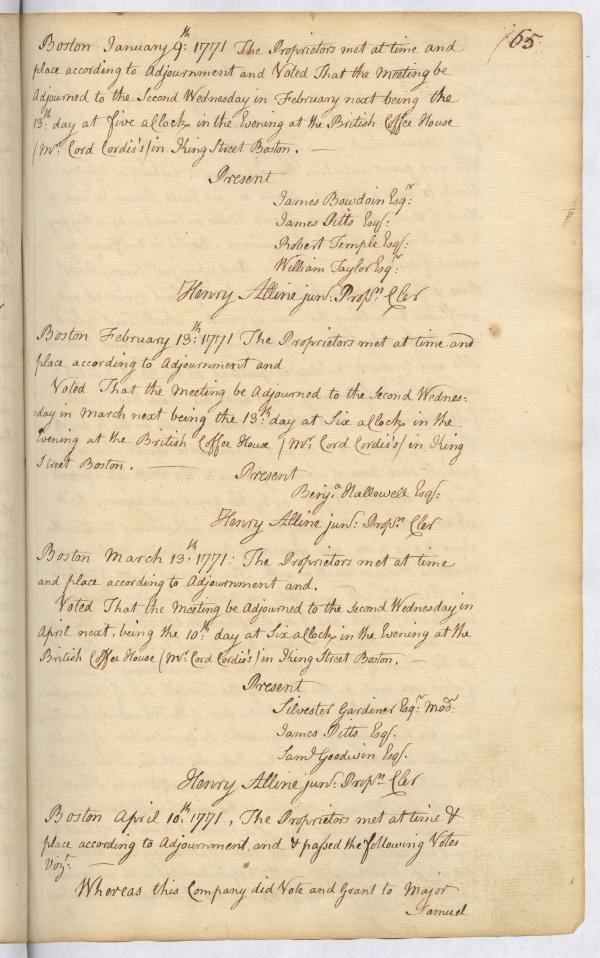 65
Boston January 9th: 1771 The Proprietors met at time and
place according to Adjournment and Voted That the Meeting be
Adjourned to the Second Wednesday in February next being the
13th: day at five aClock in the Evening at the British Coffee House
/Mr. Cord Cordis's/ in King Street Boston. —
Present
James Bowdoin Esqr:
James Pitts Esq:
Robert Temple Esq:
William Taylor Esqr:
Henry Alline junr: Propn. Cler
Boston February 13th: 1771 The Proprietors met at time and
place according to Adjournment and
Voted That the Meeting be Adjourned to the Second Wednes:
:day in March next being the 13th day at Six aClock in the
Evening at the British Coffee House /Mr. Cord Cordis's/ in King
Street Boston. —
Present
Benja. Hallowell Esq:
Henry Alline junr: Propn. Cler
Boston March 13th: 1771: The Proprietors met at time
and place according to Adjournment and. —
Voted That the Meeting be Adjourned to the Second Wednesday in
April next, being the 10th. day at Six aClock in the Evening at the
British Coffee House /Mr. Cord Cordis's/ in King Street Boston. —
Present
Silvester Gardiner Esqr: Modr:
James Pitts Esq.
Saml. Goodwin Esq.
Henry Alline junr: Propn. Cler
Boston April 10th. 1771, The Proprietors met at time &
place according to Adjournment, and & passed the following Votes
Vizt: —
Whereas this Company did Vote and Grant to Major
Samuel